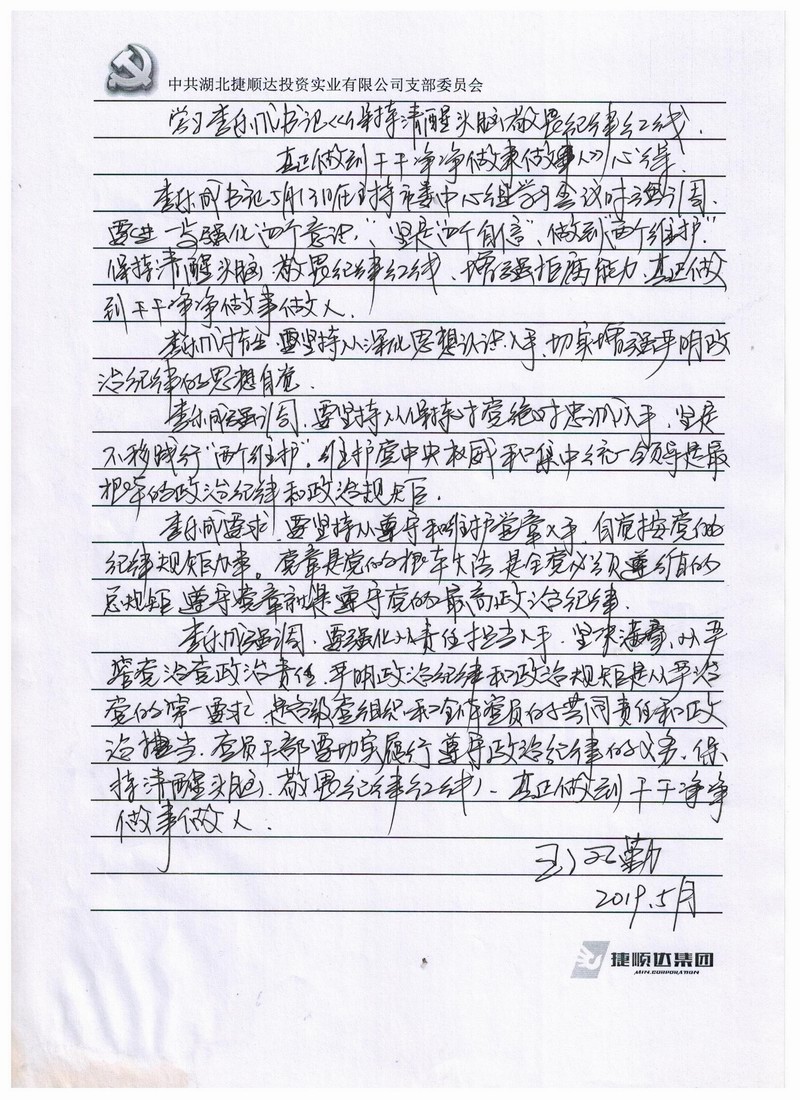 中共湖北捷顺达投资实业有限公司支部委员会
学习李乐成书记《保持清醒头脑敬畏纪律红线、
真正做到干干净净做事做人》心得
李乐成书记5月13日在主持市委中心组学习会议时强调、
要进一步强化"四个意识"、"坚定"四个自信"、做到"两个维护"
保持清醒头脑、敬畏纪律红线、增强拒腐能力、真正做
到干干净净做事做人.
李乐成指出、要坚持从深化思想认识入手、切实增强严明政
治纪律的思想自觉.
李乐成强调、要坚持从保持对党绝对忠诚入手、坚定
不移践行"两个维护"、维护党中央权威和集中统一领导是最
根本的政治纪律和政治规矩.
李乐成要求、要坚持从尊守和维护党章入手、自觉按党的
纪律规矩办事。党章是党的根本大法、是全党必须遵循的
总规矩、尊守党章就是尊守党的最高政治纪律.
李乐成强调、要强化从责任担当入手、坚决落实从严
管党治党政治责任、严明政治纪律和政治规矩是从严治
党的第一要求、是各级党组织和全体党员的共同责任和政
治担当、党员干部要切实履行尊守政治纪律的义务、保
持清醒头脑、敬畏纪律红线、真正做到干干净净
做事做人.
勤
2019.5月
捷顺达集团
MIN.CORPORATION